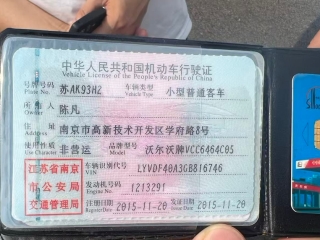 中华人民共和国机动车行驶证
Vehicle License of the People's Republic of China
号牌号码 苏AK93HZ 车辆类型 小型普通客车
Plate No. Vehicle Type
所有人 陈凡
Owner
住址 南京市高新技术开发区学府路8号
Address
使用性质 非营运 品牌型号 沃尔沃牌VCC6464C05
Use Character Model
江苏省南京市公安局交通管理局
车辆识别代号 LYVDF40A3GB816746
VIN
发动机号码 1213291
Engine No.
注册日期 2015-11-20 发证日期 2015-11-20
Register Date Issue Date